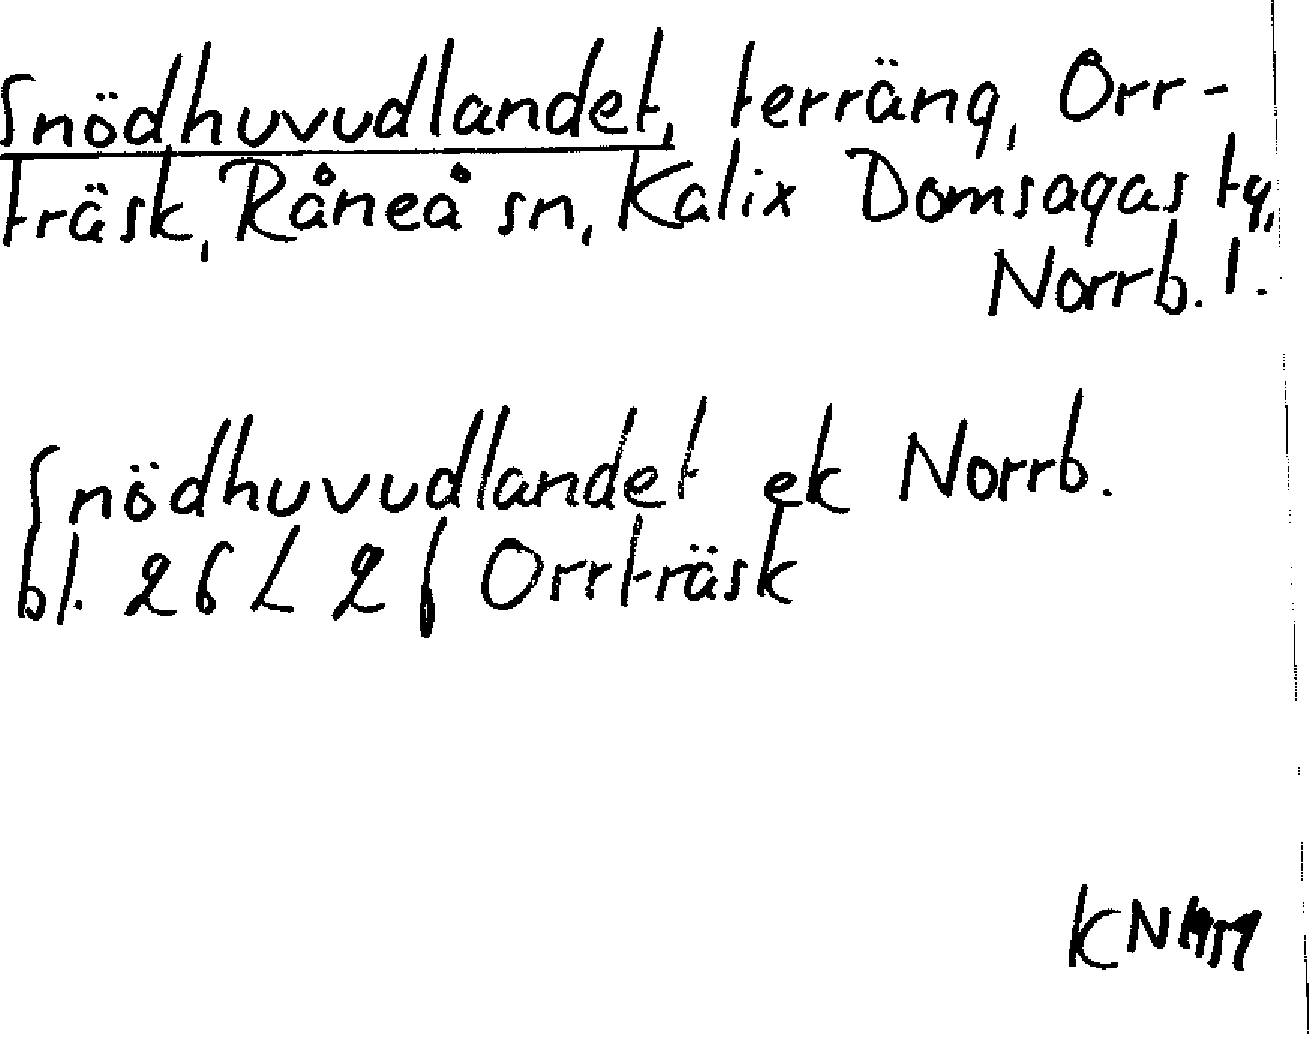 Snödhuvudlandet, terräng, Orr-
träsk, Råneå sn, Kalix Domsagas tg,
Norrb. l.
Snödhuvudlandet ek Norrb.
bl. 26 L 2 f Orrträsk
KN 1959